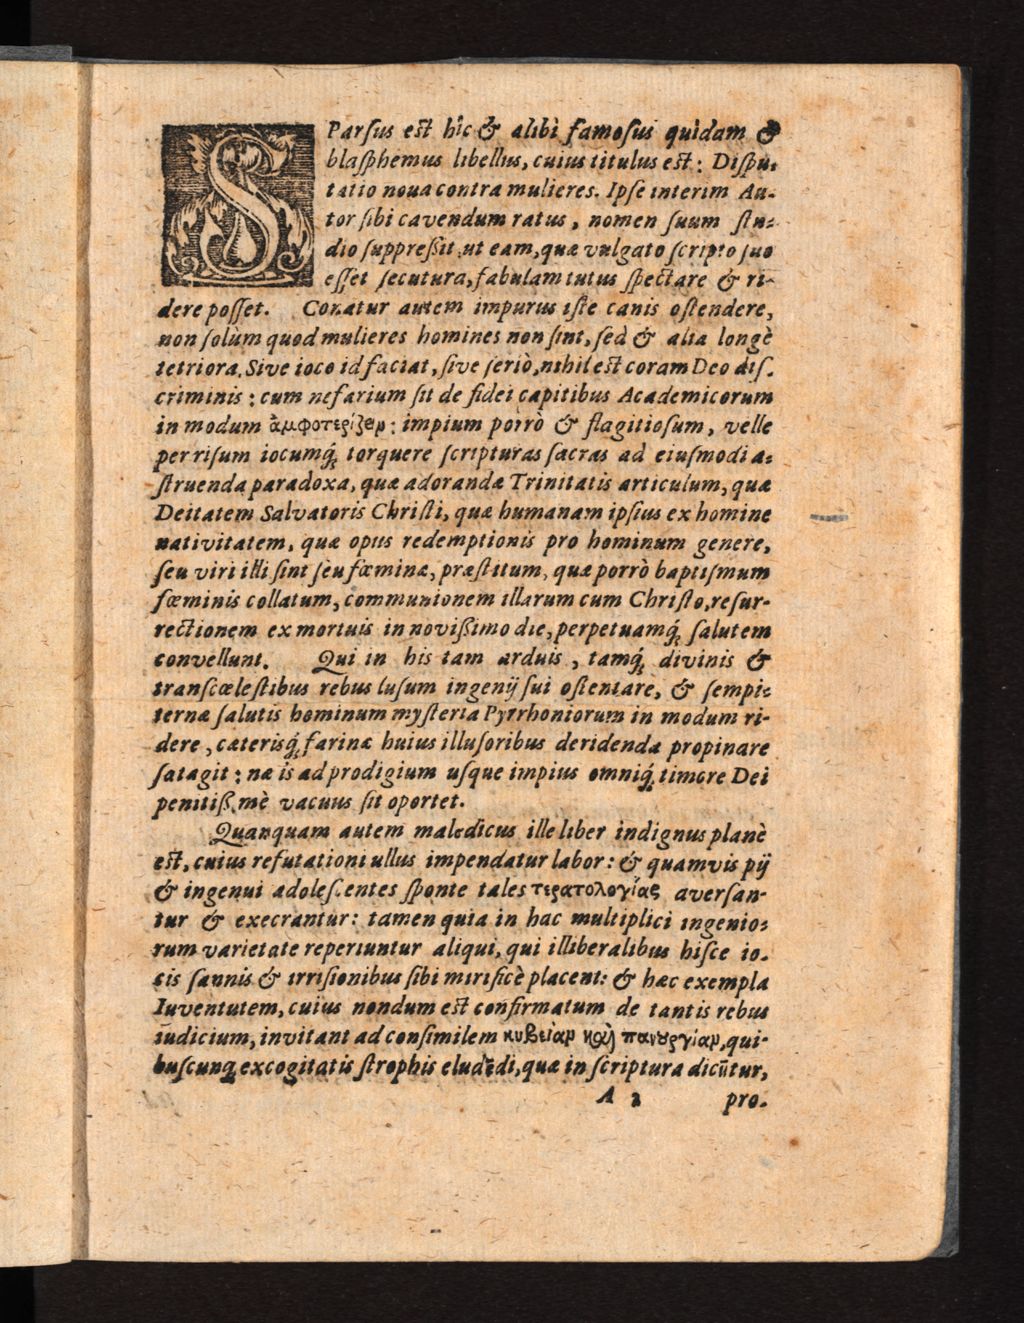 SParſus eſt hîc & alibì famoſus quidam &
blaſphemus libellus, cuius titulus eſt: Diſpu-
tatio noua contra mulieres. Ipſe interim Au-
tor ſibi cavendum ratus, nomen ſuum ſtu-
dio ſuppreßit, ut eam, quæ vulgato ſcripto ſuo
eſſet ſecutura, fabulam tutus ſpectare & ri-
dere poſſet. Conatur autem impurus iſte canis oſtendere,
non ſolùm quod mulieres homines non ſint, ſed & alia longè
tetriora. Sive ioco id faciat, ſive ſeriò, nihil eſt coram Deo diſ-
criminis: cum nefarium ſit de fidei capitibus Academicorum
in modum ἀμφοτερίζειν: impium porrò & flagitioſum, velle
per riſum iocumq́; torquere ſcripturas ſacras ad eiuſmodi a-
ſtruenda paradoxa, quæ adorandæ Trinitatis articulum, quæ
Deitatem Salvatoris Chriſti, quæ humanam ipſius ex homine
nativitatem, quæ opus redemptionis pro hominum genere,
ſeu viri illi ſint ſeu fœminæ, præſtitum, quæ porrò baptiſmum
fœminis collatum, communionem illarum cum Chriſto, reſur-
rectionem ex mortuis in novißimo die, perpetuamq́; ſalutem
convellunt. Qui in his tam arduis, tamq́; divinis &
tranſcœleſtibus rebus luſum ingenij ſui oſtentare, & ſempi-
ternæ ſalutis hominum myſteria Pyrrhoniorum in modum ri-
dere, cæterisq́; farinæ huius illuſoribus deridenda propinare
ſatagit: næ is ad prodigium uſque impius omniq́; timore Dei
penitiß. mè vacuus ſit oportet.
Quanquam autem maledicus ille liber indignus planè
eſt, cuius refutationi ullus impendatur labor: & quamvis pij
& ingenui adoleſcentes ſponte tales τερατολογίας averſan-
tur & execrantur: tamen quia in hac multiplici ingenio-
rum varietate reperiuntur aliqui, qui illiberalibus hiſce io-
cis ſannis & irriſionibus ſibi mirificè placent: & hæc exempla
Iuventutem, cuius nondum eſt confirmatum de tantis rebus
iudicium, invitant ad conſimilem κυβείαν καὶ πανουργίαν, qui-
buſcunq; excogitatis ſtrophis eludēdi, quæ in ſcriptura dicūtur,
A 2 pro-